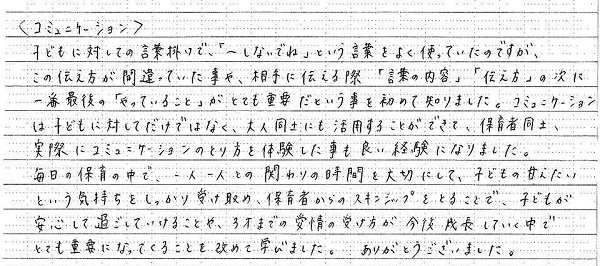 〈コミュニケーション〉
子どもに対しての言葉掛けで、「〜しないでね」という言葉をよく使っていたのですが、
この伝え方が間違っていた事や、相手に伝える際「言葉の内容」「伝え方」の次に
一番最後の「やっていること」がとても重要だという事を初めて知りました。コミュニケーション
は子どもに対してだけではなく、大人同士にも活用することができて、保育者同士、
実際にコミュニケーションのとり方を体験した事も良い経験になりました。
毎日の保育の中で、一人一人との関わりの時間を大切にして、子どもの甘えたい
という気持ちをしっかり受け止め、保育者からのスキンシップをとることで、子どもが
安心して過ごしていけることや、3才までの愛情の受け方が今後成長していく中で
とても重要になってくることを改めて学びました。 ありがとうございました。